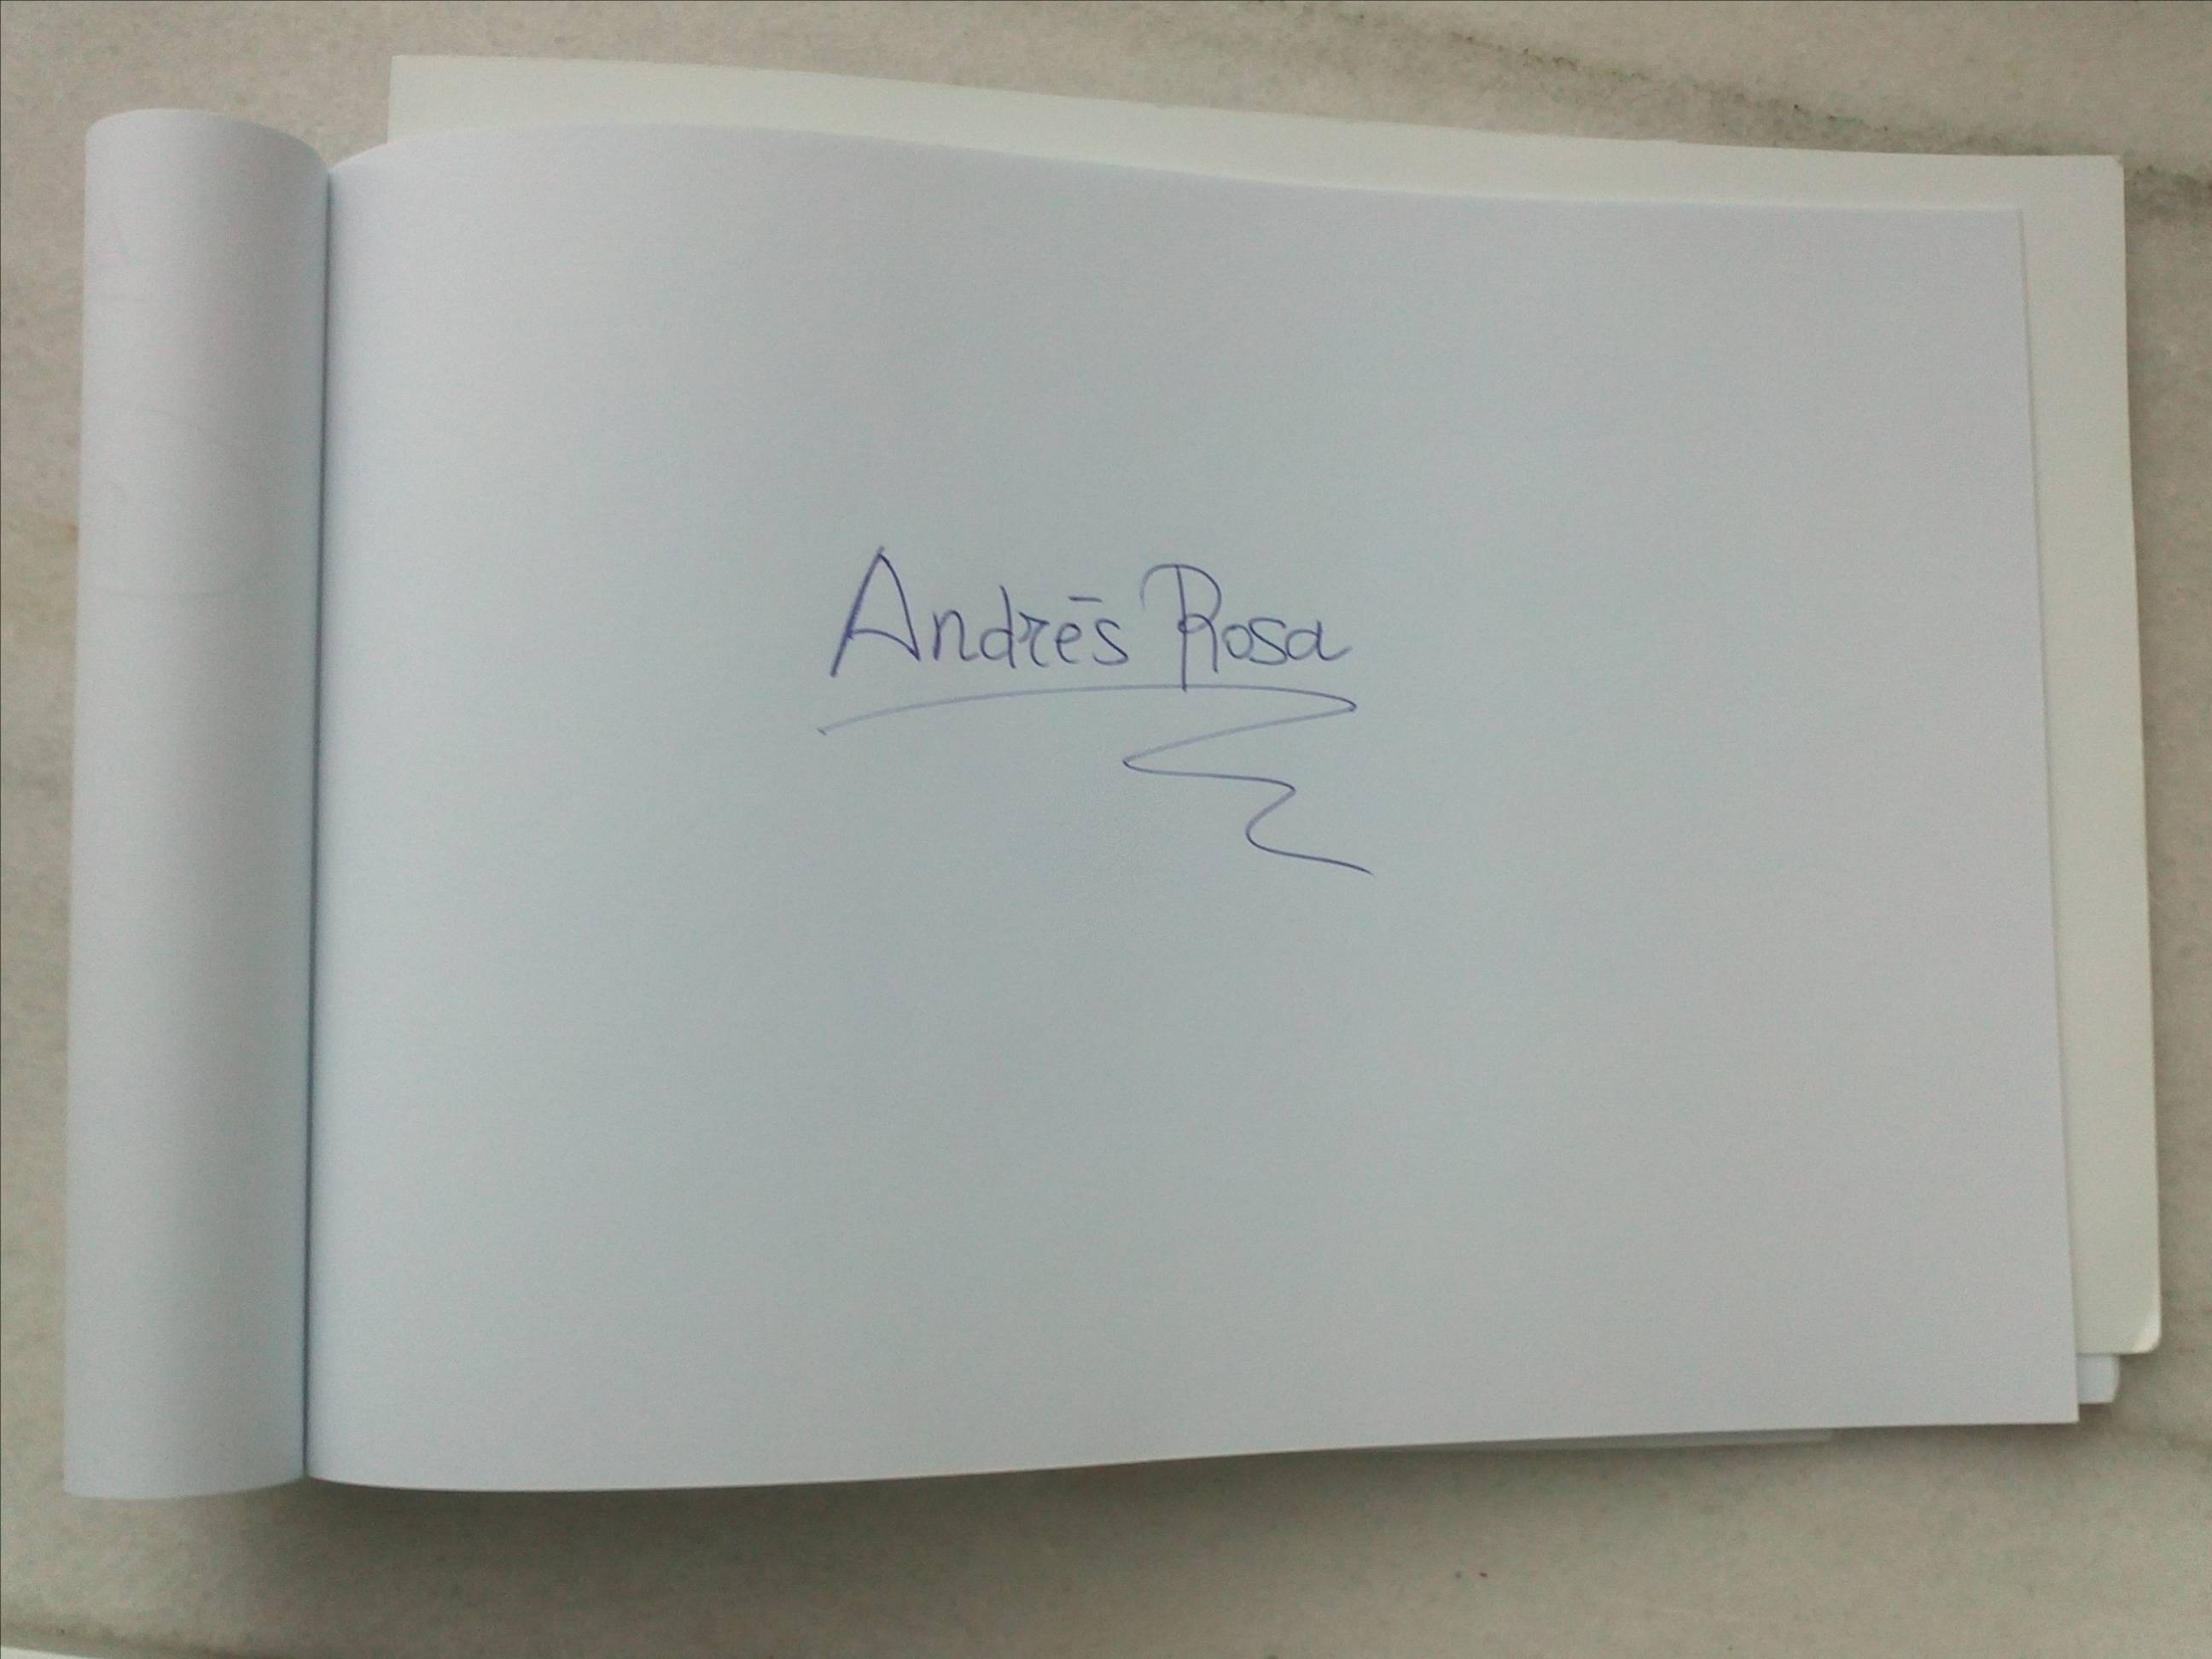 Andrés Rosa